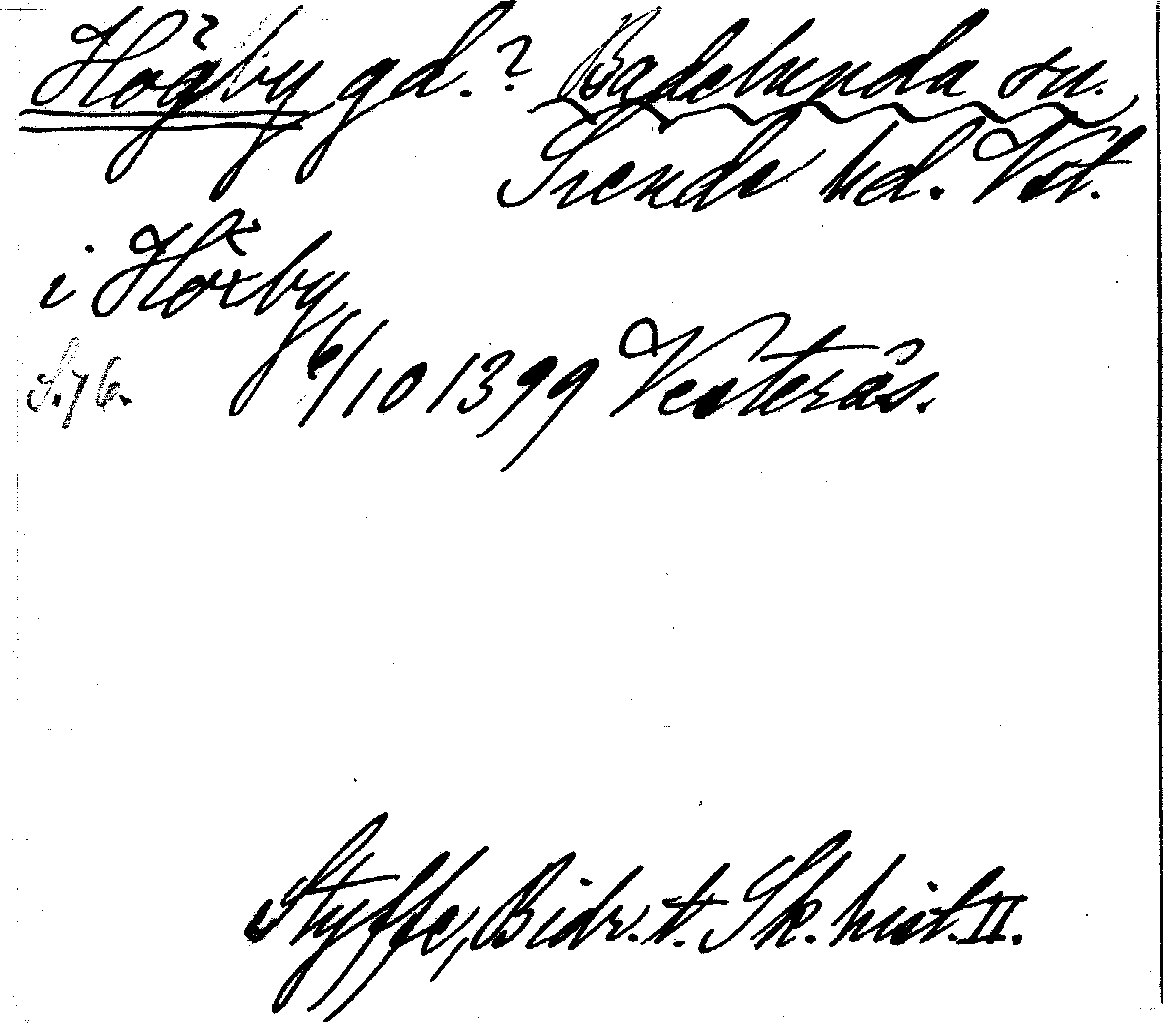 Högby gd.? Badelunda sn.
Siende hd. Vst.
i Höxby
6/10 1399 Vesterås.
S. 76.
Styffe, Bidr. t. Sk. hist. II.